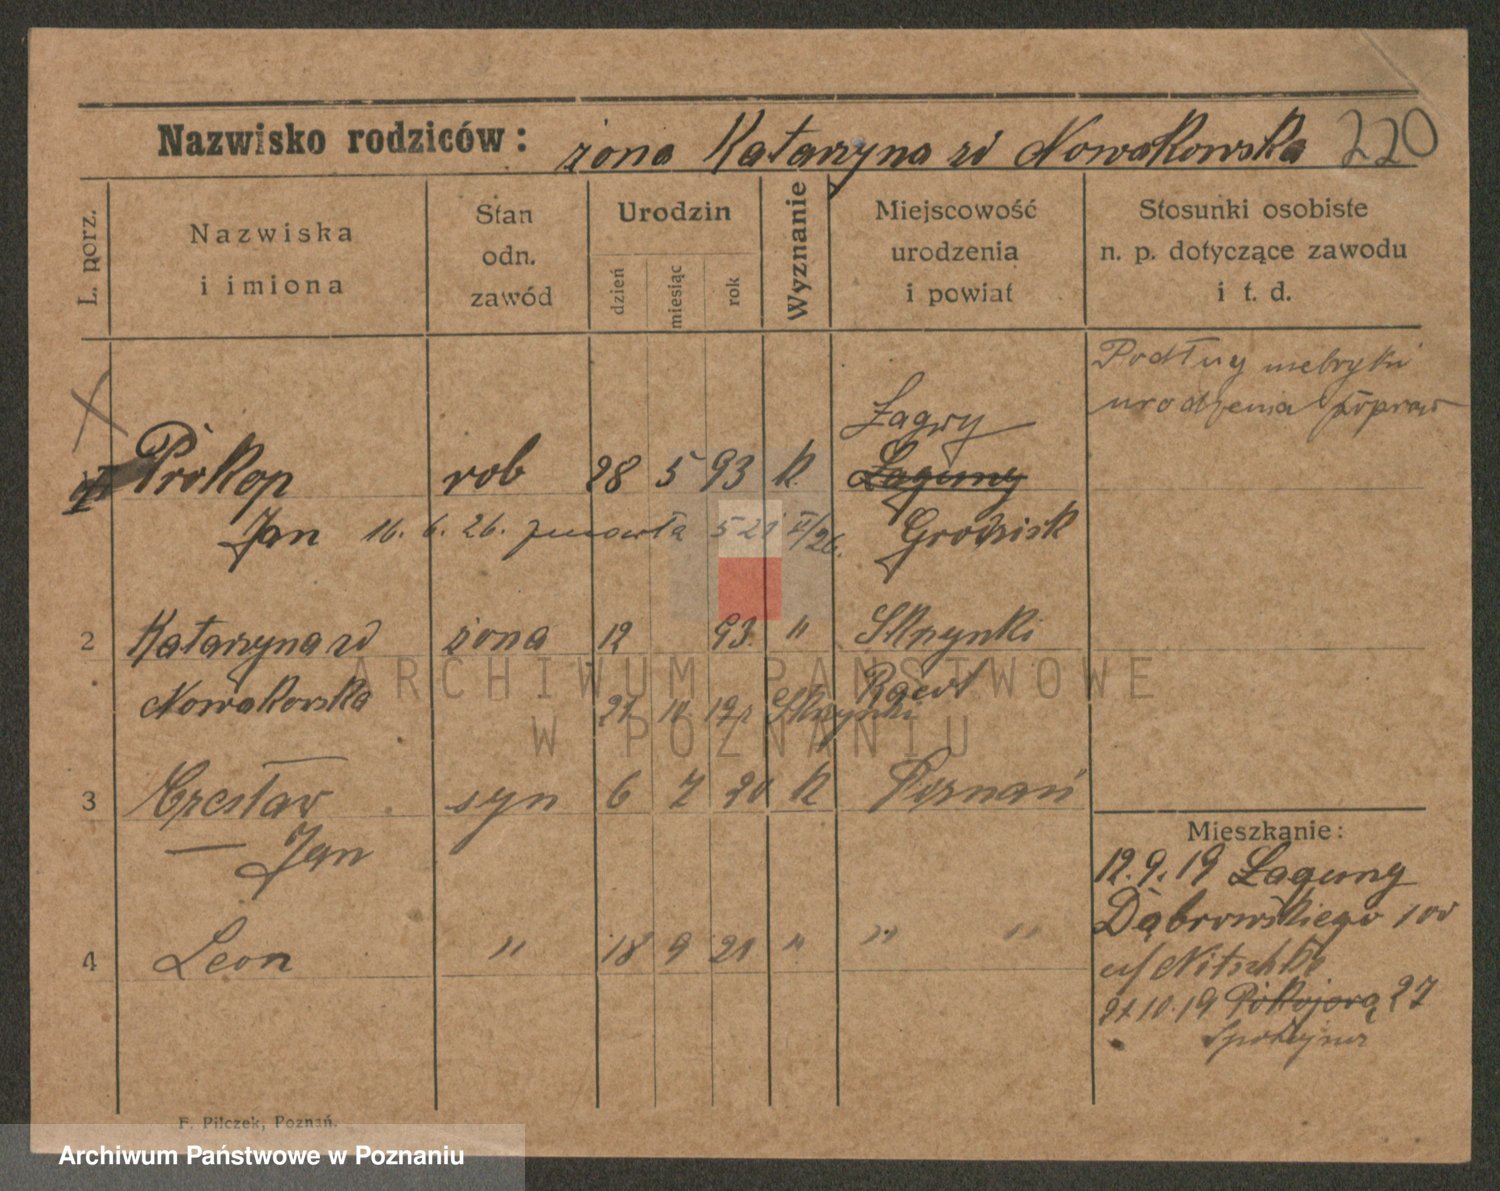 Nazwisko rodziców: żona Katarzyna zd Nowakowska 220
L. porz.
Nazwiska i imiona
Stan odn. zawód
Urodzin
dzień miesiąc rok
Wyznanie
Miejscowość urodzenia i powiat
Stosunki osobiste n. p. dotyczące zawodu i t. d.
Podług metryki
urodzenia popraw
Łagwy
1 Prokop rob 28 5 93 k Łagwny
Jan 16. 6. 26. 521 II/26. Grodzisk
2 Katarzyna zd żona 12 93. " Skrzynki
Nowakowska Rawl
21 Skrzynki
3 Czesław syn 6 7 20 k Poznań
— Jan
4 Leon " 18 9 21 " " "
Mieszkanie:
12.9.19 Łagwny
Dąbrowskiego 100
u/ Nitschke
21.10.19 Pokojową 27
Spokojna
F. Pilczek, Poznań.
ARCHIWUM PAŃSTWOWE
W POZNANIU
Archiwum Państwowe w Poznaniu